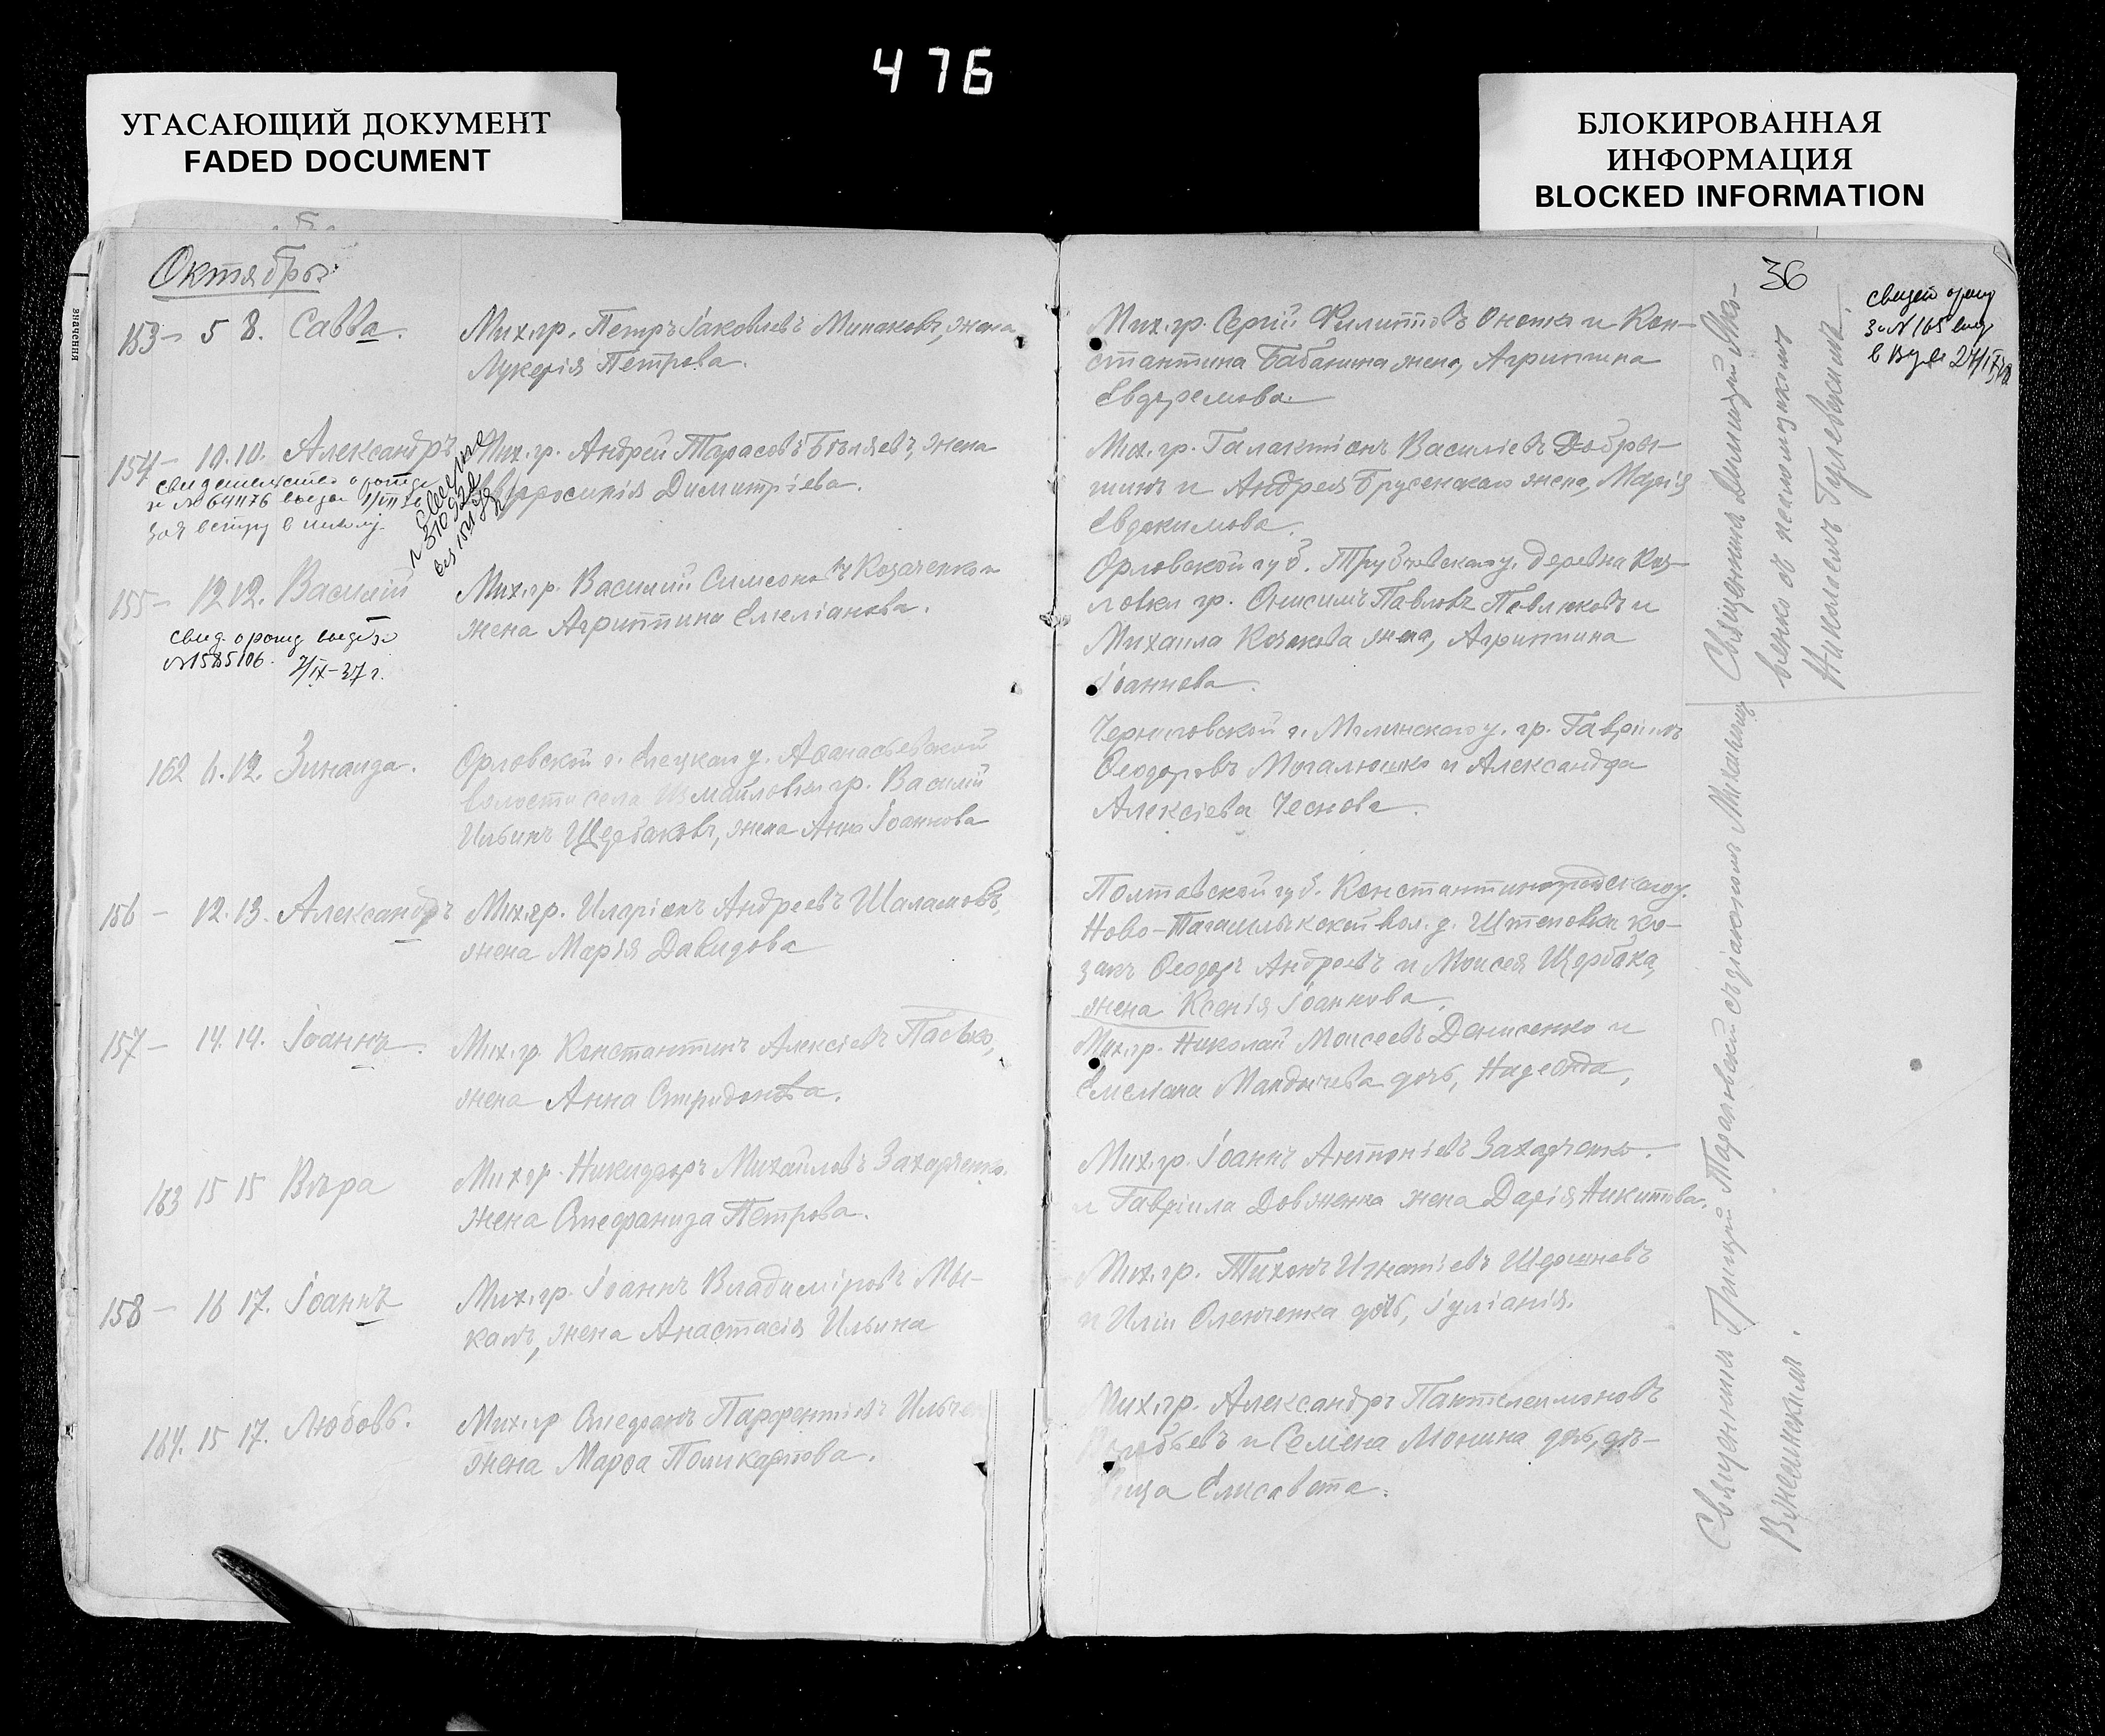 476
УГАСАЮЩИЙ ДОКУМЕНТ
FADED DOCUMENT
БЛОКИРОВАННАЯ
ИНФОРМАЦИЯ
BLOCKED INFORMATION
значения
Октябрь
153 – 5 8. Савва.
Мих. гр. Петръ Іаковлевъ Минаковъ, жена
Лукерія Петрова.
154 – 10. 10. Александръ
Мих. гр. Андрей Тарасовъ Бѣляевъ, жена
Евфросинія Димитріева.
свидетельство о рожд
за № 641176
155 – 12 12. Василій
Мих. гр. Василій Симеоновъ Козаченко и
жена Агриппина Емеліанова.
свид. о рожд выдано
№ 1585106. 2/IX–37 г.
162 11. 12. Зинаида.
Орловской г. Елецкаго у. Аѳанасьевской
волости села Измайловки гр. Василій
Ильинъ Щербаковъ, жена Анна Іоаннова
156 – 12. 13. Александръ
Мих. гр. Иларіонъ Андреевъ Шаламовъ,
жена Марія Давидова
157 – 14. 14. Іоаннъ.
Мих. гр. Константинъ Алексіевъ Пасько,
жена Анна Спиридонова.
163 15 15 Вѣра
Мих. гр. Никифоръ Михайловъ Захарченко.
Жена Стефанида Петрова.
158 – 16 17. Іоаннъ
Мих. гр. Іоаннъ Владиміровъ Мы-
калъ, жена Анастасія Ильина
164. 15 17. Любовь.
Мих. гр. Стефанъ Парфентіевъ
жена Марѳа Поликарпова.
36
Мих. гр. Сергій Филипповъ и Кон-
стантина Бабанина жена, Агриппина
Евдремова.
Мих. гр. Галактіонъ Василіевъ Добры-
шинъ и Андрея Брусенскаго жена, Марія
Евдокимова.
Орловской губ. Трубчевскаго у. деревни Коз-
ловки гр. Онисимъ Павловъ Павлюковъ и
Михаила Козакова жена, Агриппина
Іоаннова.
Черниговской г. Мглинскаго у. гр. Гавріилъ
Ѳеодоровъ Могалюшко и Александра
Алексіева Чеснова.
Полтавской губ. Константиноградскаго у.
Ново-Тагамлыкской вол. д. Щтеповки ко-
закъ Ѳеодоръ Андреевъ и Моисея Щербака,
жена Ксенія Іоаннова.
Мих. гр. Николай Моисеевъ Денисенко и
Емеліана дочь, Надежда,
Мих. гр. Іоаннъ Антоніевъ Захарченко.
и Гавріила Довженка жена Дарія Никитова.
Мих. гр. Тихонъ Игнатіевъ
и Иліи Оленченка дочь, Іуліанія.
Мих. гр. Александръ Пантелеимоновъ
и Семена Монина дочь, дѣ-
вица Елисавета.
Священникъ Димитрій Яко-
венко съ псаломщикомъ
Николаемъ
Священникъ Григорій съ діакономъ Михаиломъ